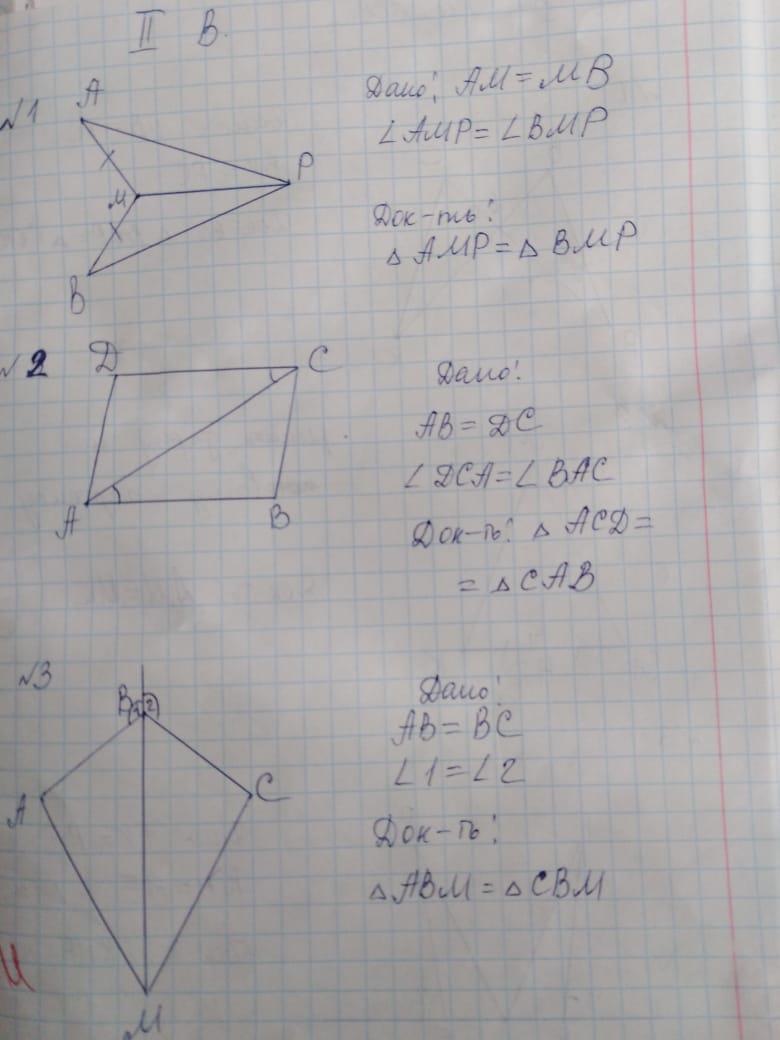 II В.
№1
A
M
P
B
Дано: AM = MB
∠AMP = ∠BMP
Док-ть:
△ AMP = △ BMP
№2
D
C
A
B
Дано:
AB = DC
∠DCA = ∠BAC
Док-ть: △ ACD =
= △ CAB
№3
B 1 2
A
C
M
Дано:
AB = BC
∠1 = ∠2
Док-ть:
△ABM = △CBM